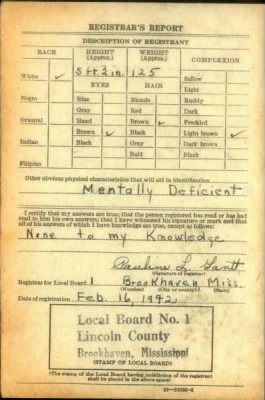 REGISTRAR'S REPORT
DESCRIPTION OF REGISTRANT
RACE HEIGHT (Approx.) WEIGHT (Approx.) COMPLEXION
White ✓ 5 ft 2 in. 125 Sallow
EYES HAIR Light
Negro Blue Blonde Ruddy
Gray Red Dark
Oriental Hazel Brown ✓ Freckled
Brown ✓ Black Light brown ✓
Indian Black Gray Dark brown
Bald Black
Filipino
Other obvious physical characteristics that will aid in identification
Mentally Deficient
I certify that my answers are true; that the person registered has read or has had
read to him his own answers; that I have witnessed his signature or mark and that
all of his answers of which I have knowledge are true, except as follows:
None to my Knowledge
Pauline L. Gantt
(Signature of registrar)
Registrar for Local Board 1 Brookhaven Miss.
(Number) (City or county) (State)
Date of registration Feb. 16, 1942
Local Board No. 1
Lincoln County
Brookhaven, Mississippi
(STAMP OF LOCAL BOARD)
(The stamp of the Local Board having jurisdiction of the registrant
shall be placed in the above space)